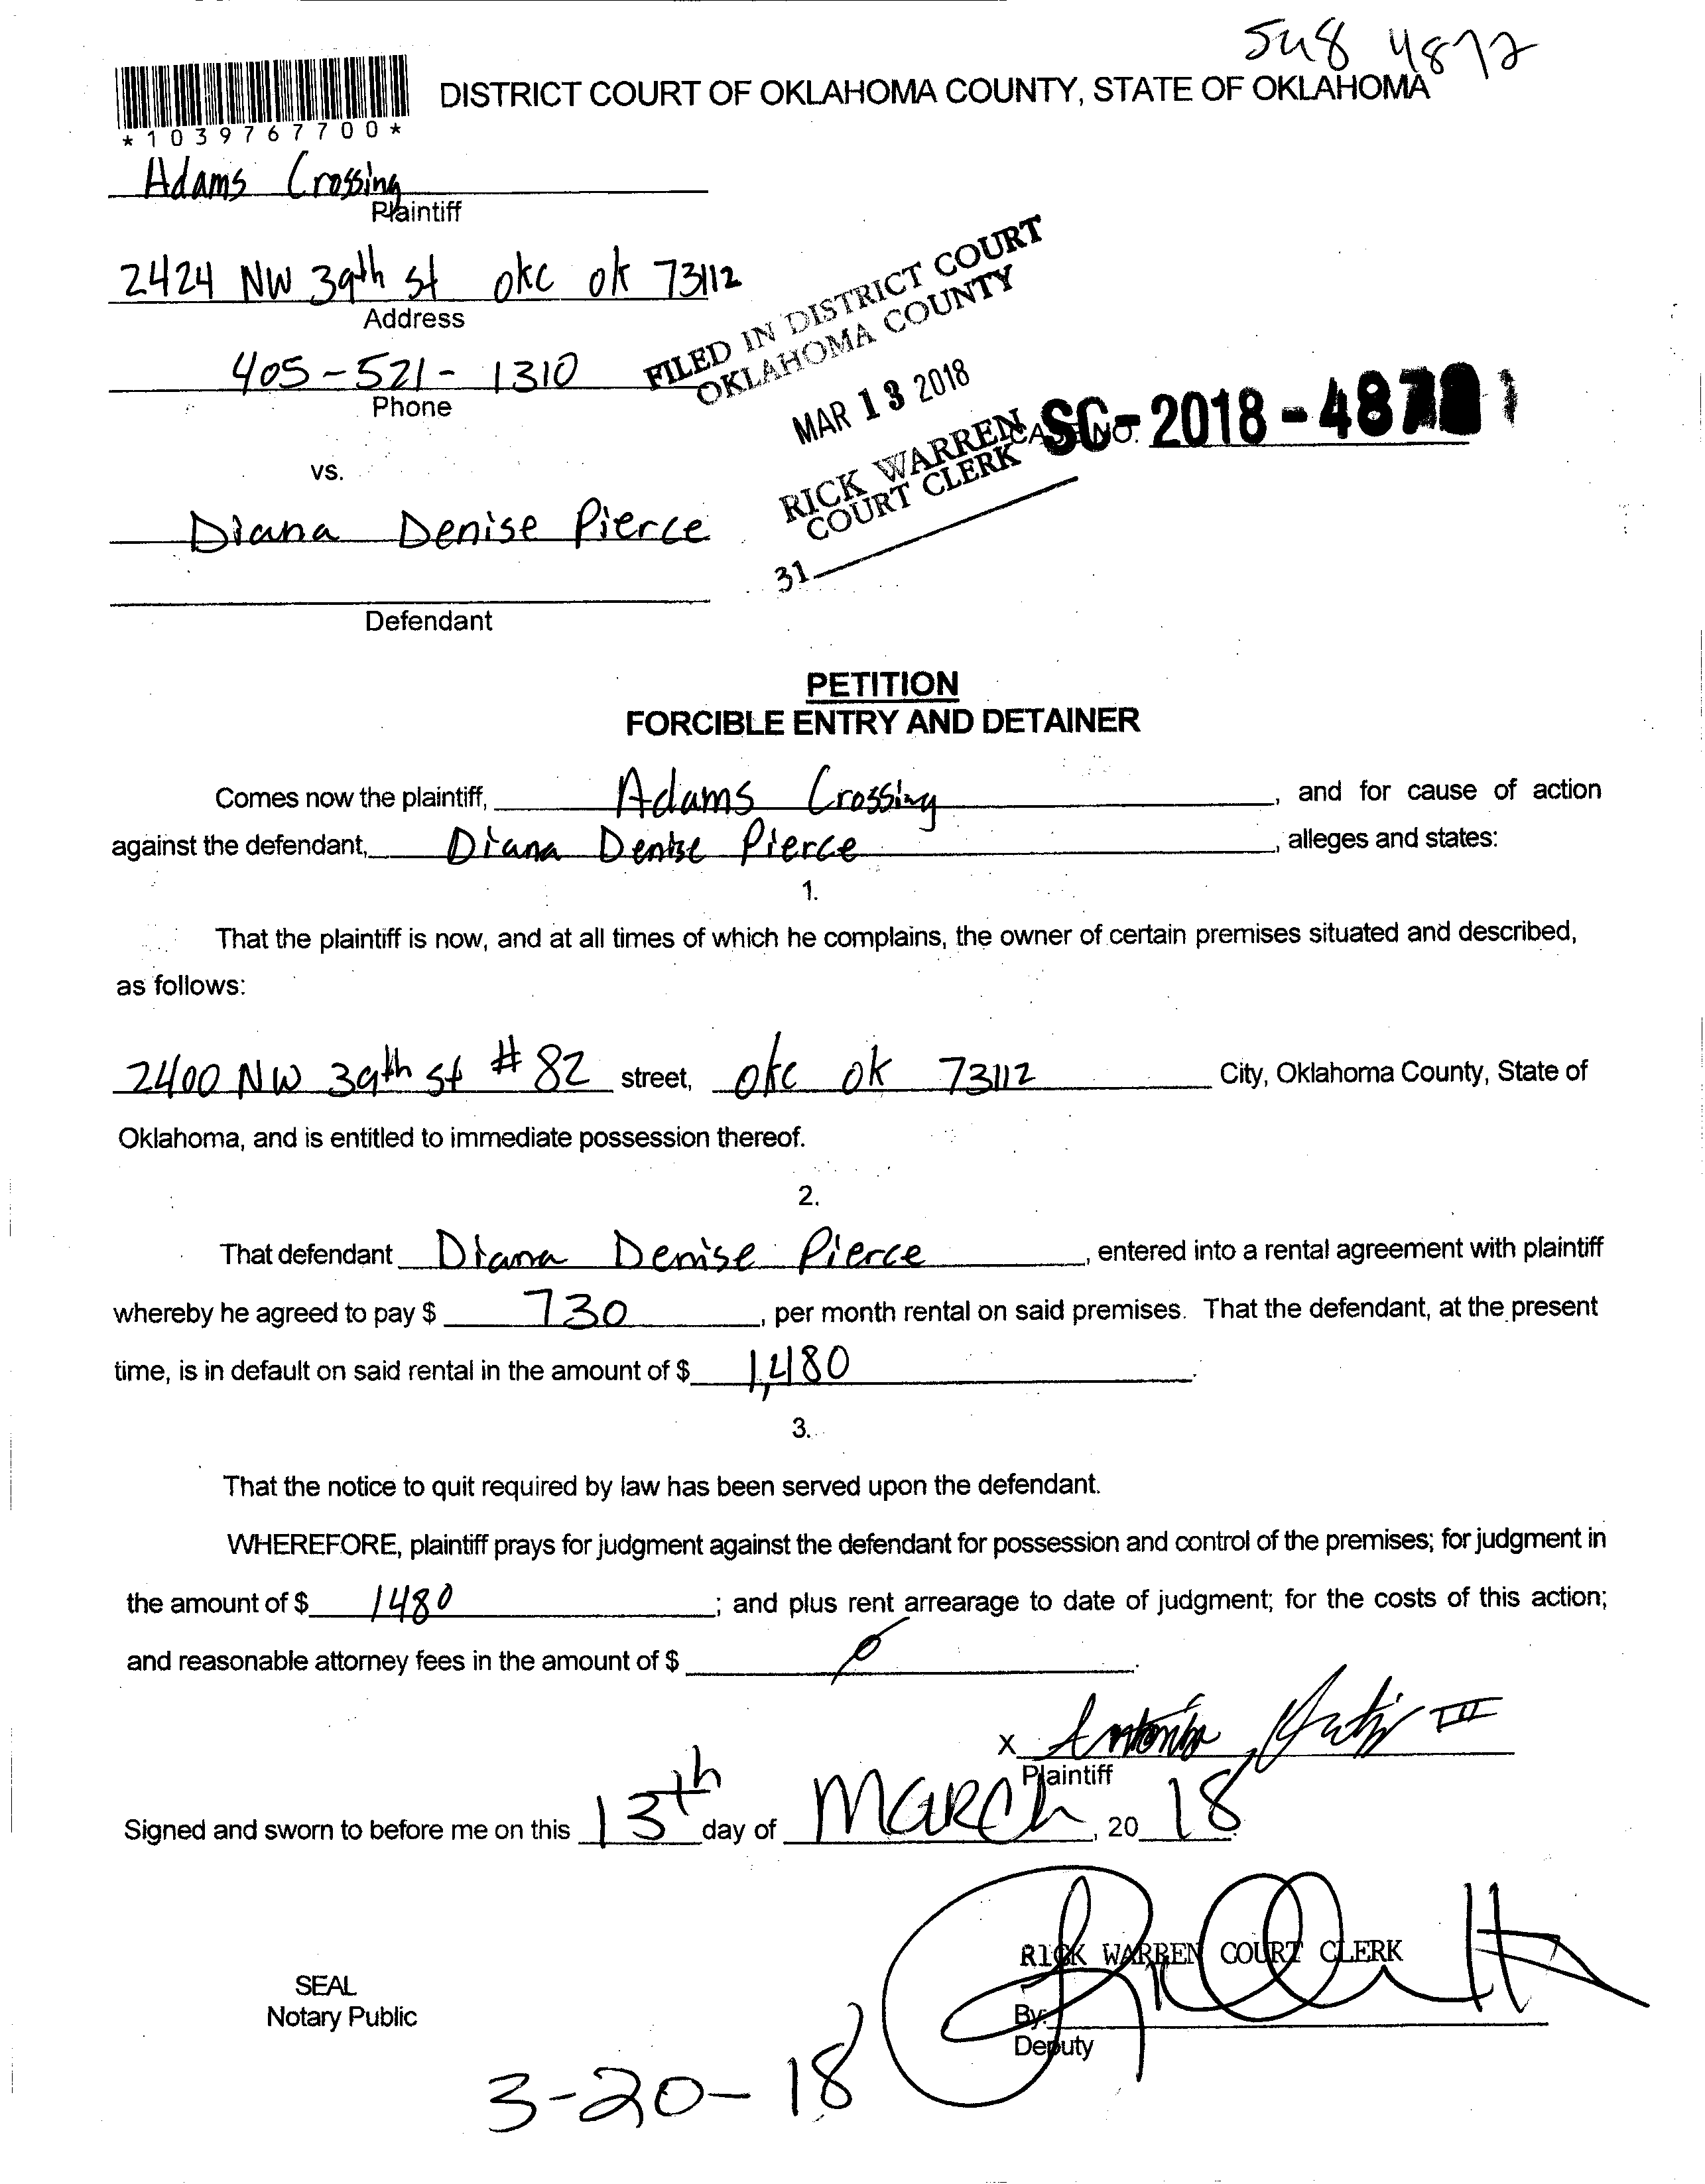 548 4872
DISTRICT COURT OF OKLAHOMA COUNTY, STATE OF OKLAHOMA
*1039767700*
Adams Crossing
Plaintiff
2424 NW 39th st okc ok 73112
Address
405-521-1310
Phone
FILED IN DISTRICT COURT
OKLAHOMA COUNTY
MAR 13 2018
RICK WARREN
COURT CLERK
31
CASE NO. SC-2018-487
vs.
Diana Denise Pierce
Defendant
PETITION
FORCIBLE ENTRY AND DETAINER
Comes now the plaintiff, Adams Crossing, and for cause of action
against the defendant, Diana Denise Pierce, alleges and states:
1.
That the plaintiff is now, and at all times of which he complains, the owner of certain premises situated and described,
as follows:
2400 NW 39th st # 82 street, okc ok 73112 City, Oklahoma County, State of
Oklahoma, and is entitled to immediate possession thereof.
2.
That defendant Diana Denise Pierce, entered into a rental agreement with plaintiff
whereby he agreed to pay $ 730, per month rental on said premises. That the defendant, at the present
time, is in default on said rental in the amount of $ 1,480.
3.
That the notice to quit required by law has been served upon the defendant.
WHEREFORE, plaintiff prays for judgment against the defendant for possession and control of the premises; for judgment in
the amount of $ 1480; and plus rent arrearage to date of judgment; for the costs of this action;
and reasonable attorney fees in the amount of $ 0.
X Antonio III
Plaintiff
Signed and sworn to before me on this 13th day of March, 2018.
RICK WARREN COURT CLERK
SEAL
Notary Public
By:
Deputy
3-20-18